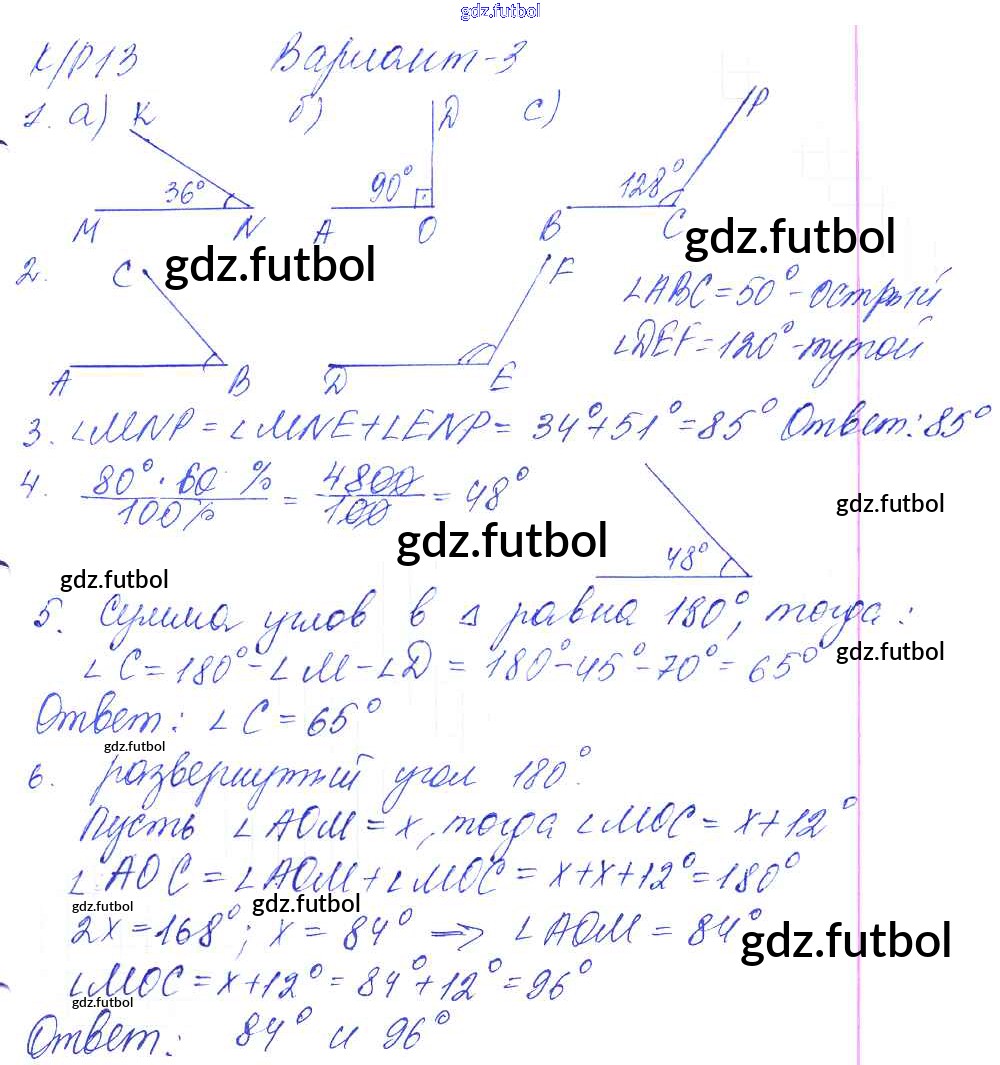 gdz.futbol
К/Р13 Вариант-3
1. а) K б) D с) P
36° 90° 128°
M N A O B C
gdz.futbol gdz.futbol
2. C F ∠ABC = 50° - острый
∠DEF = 120° - тупой
A B D E
3. ∠MNP = ∠MNE + ∠ENP = 34° + 51° = 85° Ответ: 85°
4. 80° · 60 % / 100% = 4800 / 100 = 48°
gdz.futbol
gdz.futbol 48°
gdz.futbol
5. Сумма углов в Δ равна 180°, тогда:
∠C = 180° - ∠M - ∠D = 180° - 45° - 70° = 65°
gdz.futbol
Ответ: ∠C = 65°
gdz.futbol
6. развернутый угол 180°.
Пусть ∠AOM = x, тогда ∠MOC = x + 12°
∠AOC = ∠AOM + ∠MOC = x + x + 12° = 180°
gdz.futbol gdz.futbol
2x = 168°; x = 84° => ∠AOM = 84°
gdz.futbol
∠MOC = x + 12° = 84° + 12° = 96°
gdz.futbol
Ответ: 84° и 96°